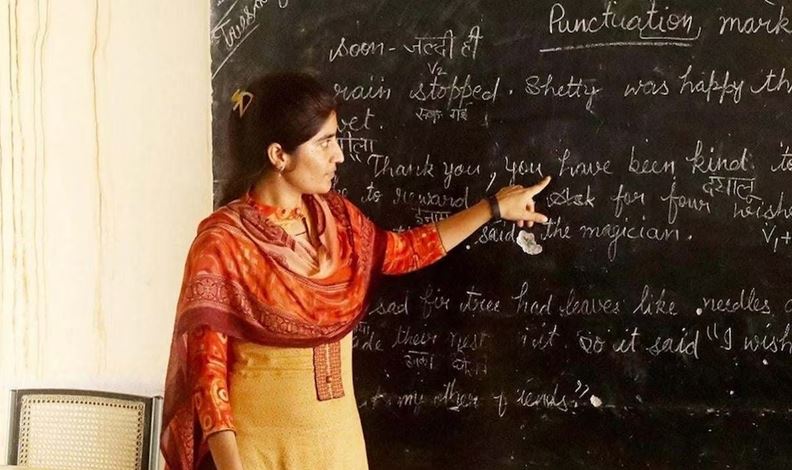 Punctuation, mark
soon - जल्दी ही
V2
rain stopped. Shetty was happy th
रुक गई
wet.
"Thank you, you have been kind to
दयालु
to reward for four wishe
ईनाम
V1+
said the magician.
sad fir tree had leaves like needles
their nest in it. So it said "I wish
my other friends".